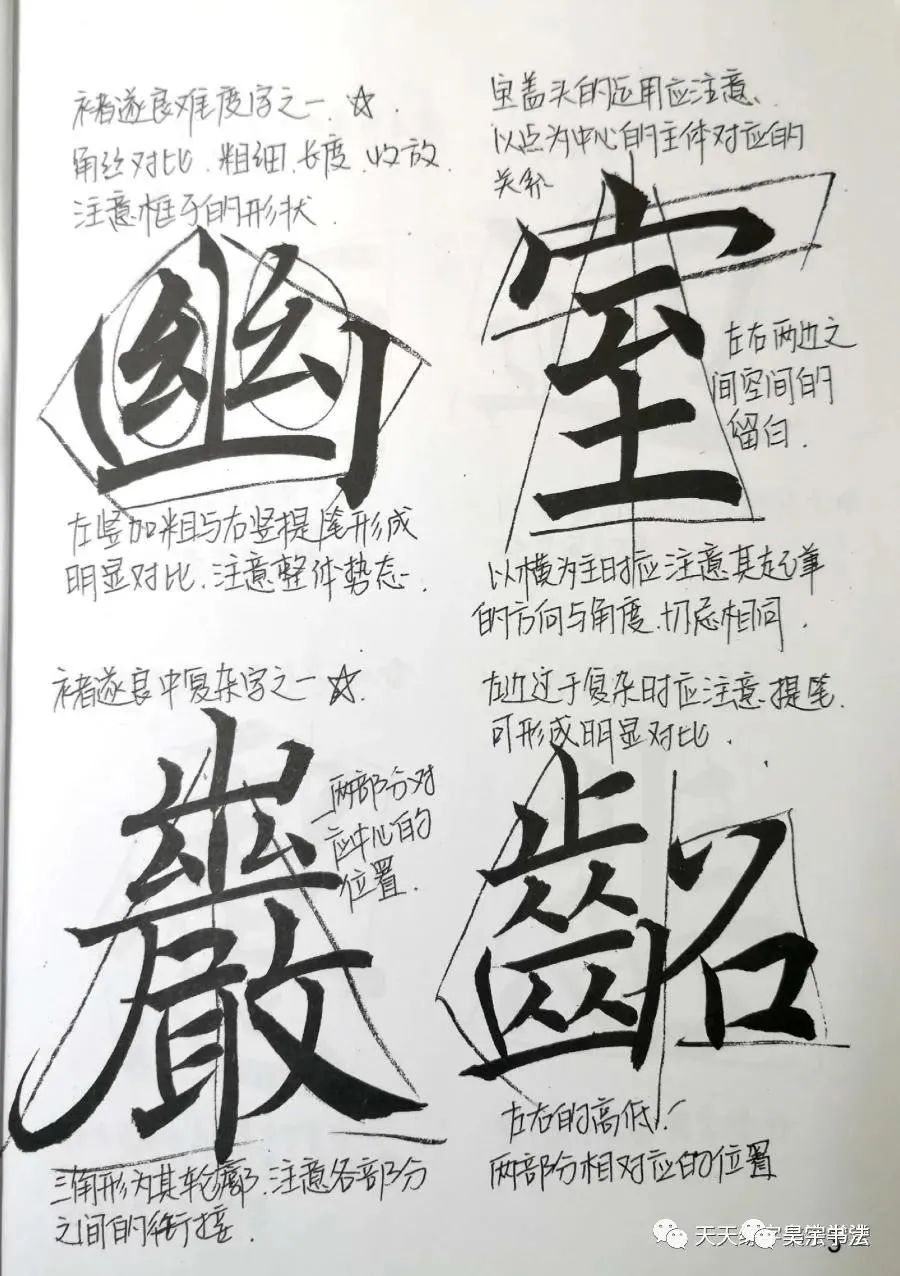 褚遂良难度字之一.☆.
两丝对比.粗细.长度.收放.
注意框子的形状.
幽
左竖加粗与右竖提笔形成
明显对比.注意整体势态.
宝盖头的运用应注意、
以点为中心的主体对应的
关系
室
左右两边之
间空间的
留白.
以横为主时应注意其起笔
的方向与角度.切忌相同.
褚遂良中复杂字之一☆.
巖
两部分对
应中心的
位置.
三角形为其轮廓.注意各部分
之间的衔接.
左边过于复杂时应注意.提笔.
可形成明显对比.
齠
左右的高低.
两部分相对应的位置
天天练字昊宗书法